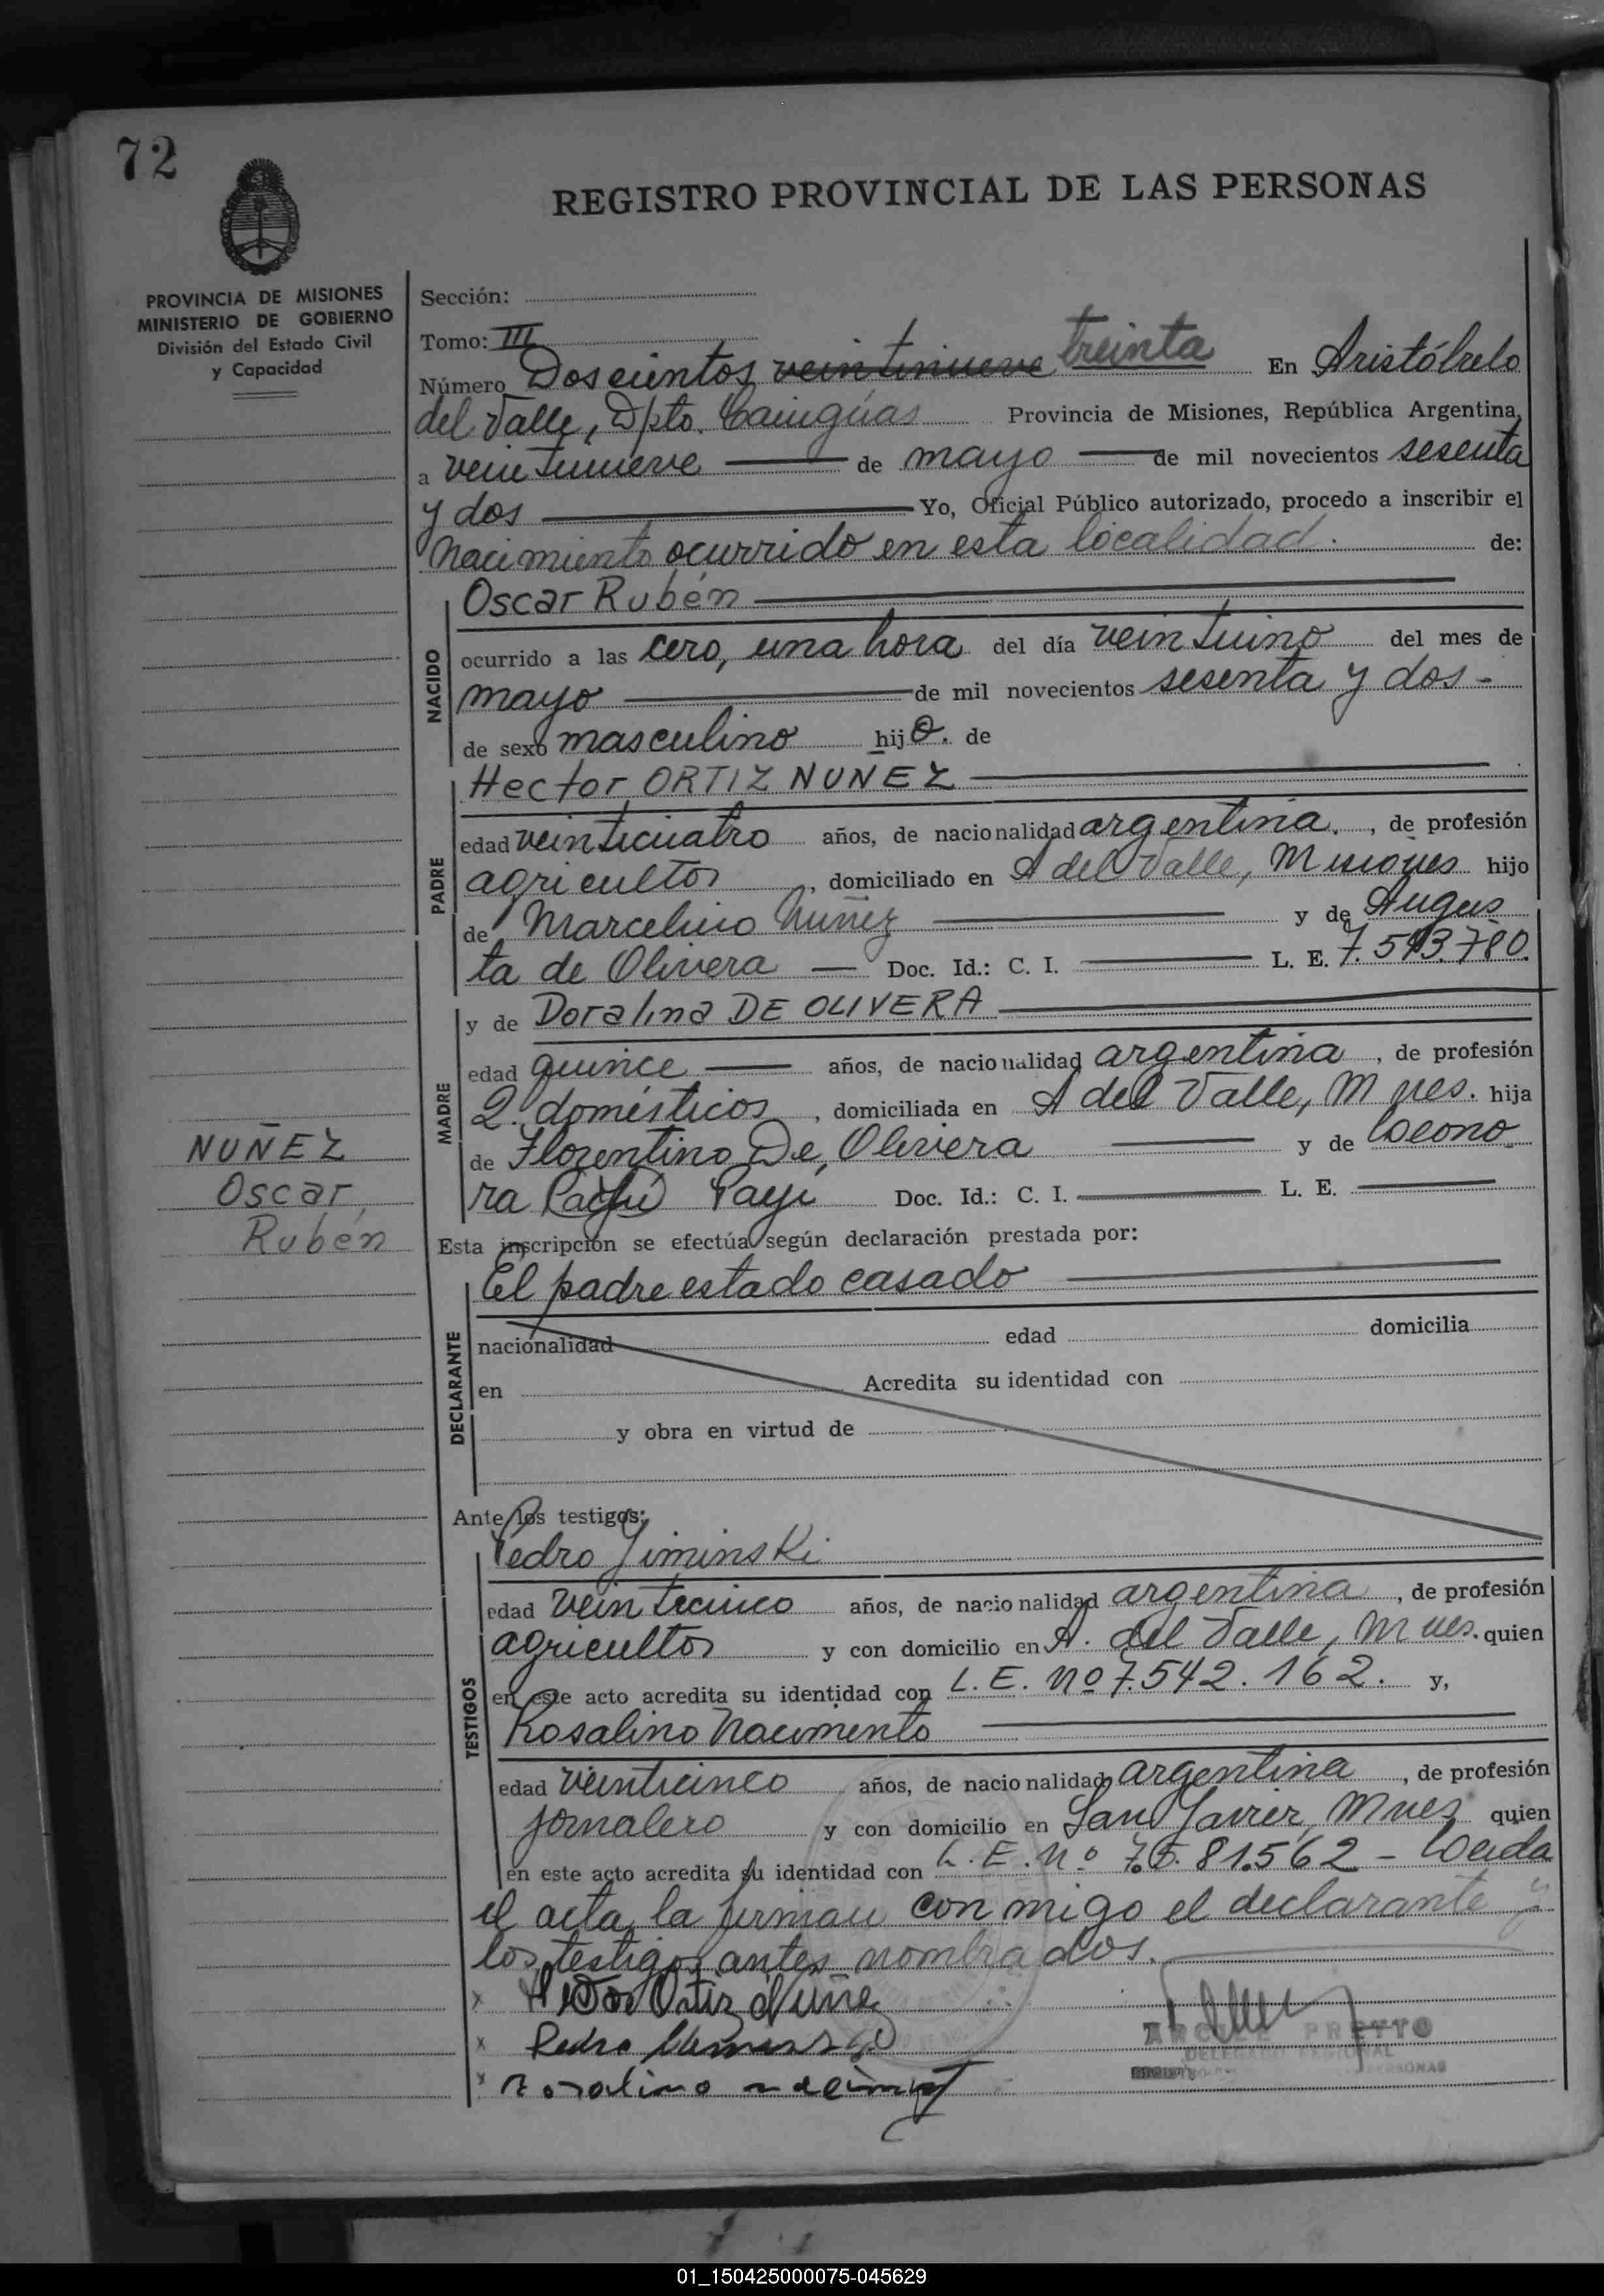 72
REGISTRO PROVINCIAL DE LAS PERSONAS
PROVINCIA DE MISIONES
MINISTERIO DE GOBIERNO
División del Estado Civil
y Capacidad
Sección:
Tomo: III
Número Doscientos veintinueve treinta En Aristóbulo
del Valle, Dpto. Cainguas Provincia de Misiones, República Argentina,
a veintinueve de mayo de mil novecientos sesenta
y dos Yo, Oficial Público autorizado, procedo a inscribir el
nacimiento ocurrido en esta localidad. de:
NACIDO
Oscar Rubén
ocurrido a las cero, una hora del día veintiuno del mes de
mayo de mil novecientos sesenta y dos -
de sexo masculino hijo. de
PADRE
Hector ORTIZ NUÑEZ
edad veinticuatro años, de nacionalidad argentina, de profesión
agricultor, domiciliado en A del Valle, Misiones hijo
de Marcelino Nuñez y de Augus
ta de Olivera Doc. Id.: C. I. L. E. 7.513.780.
MADRE
y de Doralina DE OLIVERA
edad quince años, de nacionalidad argentina, de profesión
Q. domésticos, domiciliada en A del Valle, Mnes. hija
de Florentino De Olivera y de Leono
ra Payi Doc. Id.: C. I. L. E.
NUÑEZ
Oscar
Rubén
Esta inscripción se efectúa según declaración prestada por:
DECLARANTE
El padre estado casado
nacionalidad edad domicilia
en Acredita su identidad con
y obra en virtud de
Ante los testigos:
TESTIGOS
Pedro Jiminski
edad veinticinco años, de nacionalidad argentina, de profesión
agricultor y con domicilio en A. del Valle, Mnes. quien
en este acto acredita su identidad con L.E. nº 7.542.162. y,
Rosalino Nacimento
edad veinticinco años, de nacionalidad argentina, de profesión
jornalero y con domicilio en San Javier, Mnes quien
en este acto acredita su identidad con L.E. nº 7.581.562 - Leida
el acta, la firman conmigo el declarante y
los testigos antes nombrados.
x Hector Ortiz Nuñez
x Pedro
x Rosalino
PREYTO
DELEGADO REGIONAL
PERSONAS
01_150425000075-045629